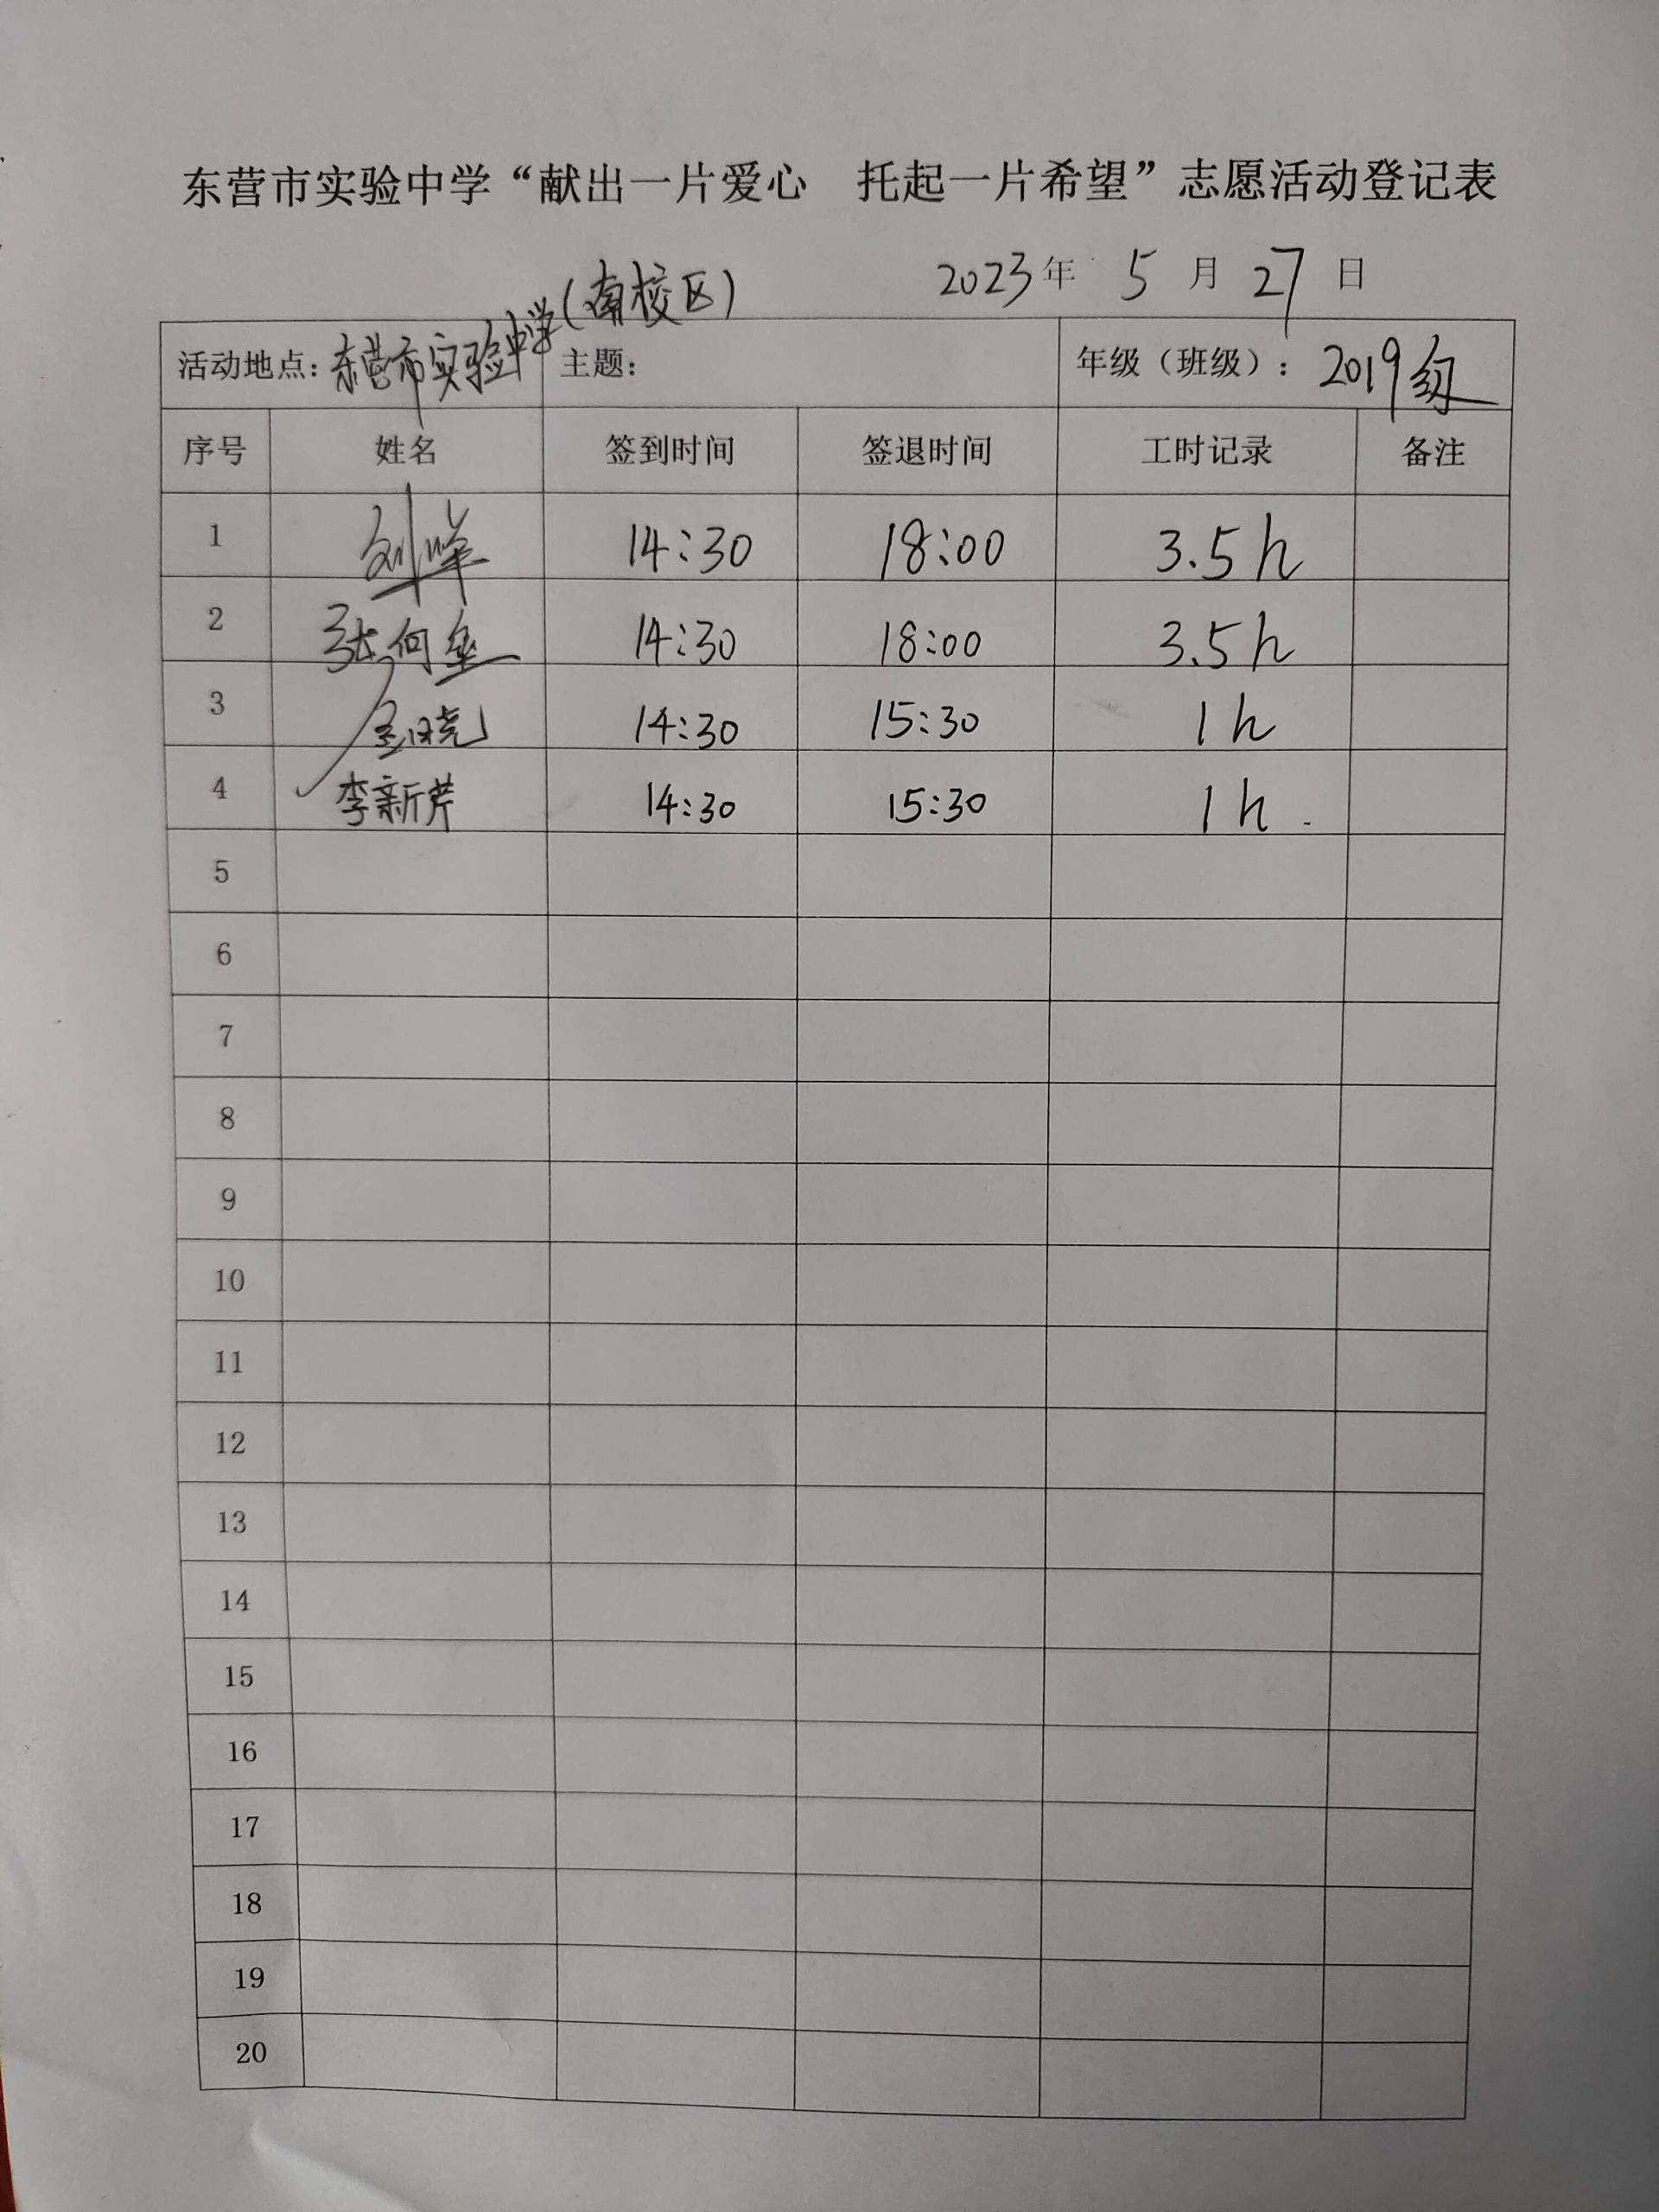 东营市实验中学“献出一片爱心 托起一片希望”志愿活动登记表
2023年 5 月 27 日
活动地点：东营市实验中学(南校区) 主题： 年级（班级）：2019级
序号 姓名 签到时间 签退时间 工时记录 备注
1 刘峰 14:30 18:00 3.5h
2 张何 14:30 18:00 3.5h
3 14:30 15:30 1h
4 李新芹 14:30 15:30 1h
5
6
7
8
9
10
11
12
13
14
15
16
17
18
19
20